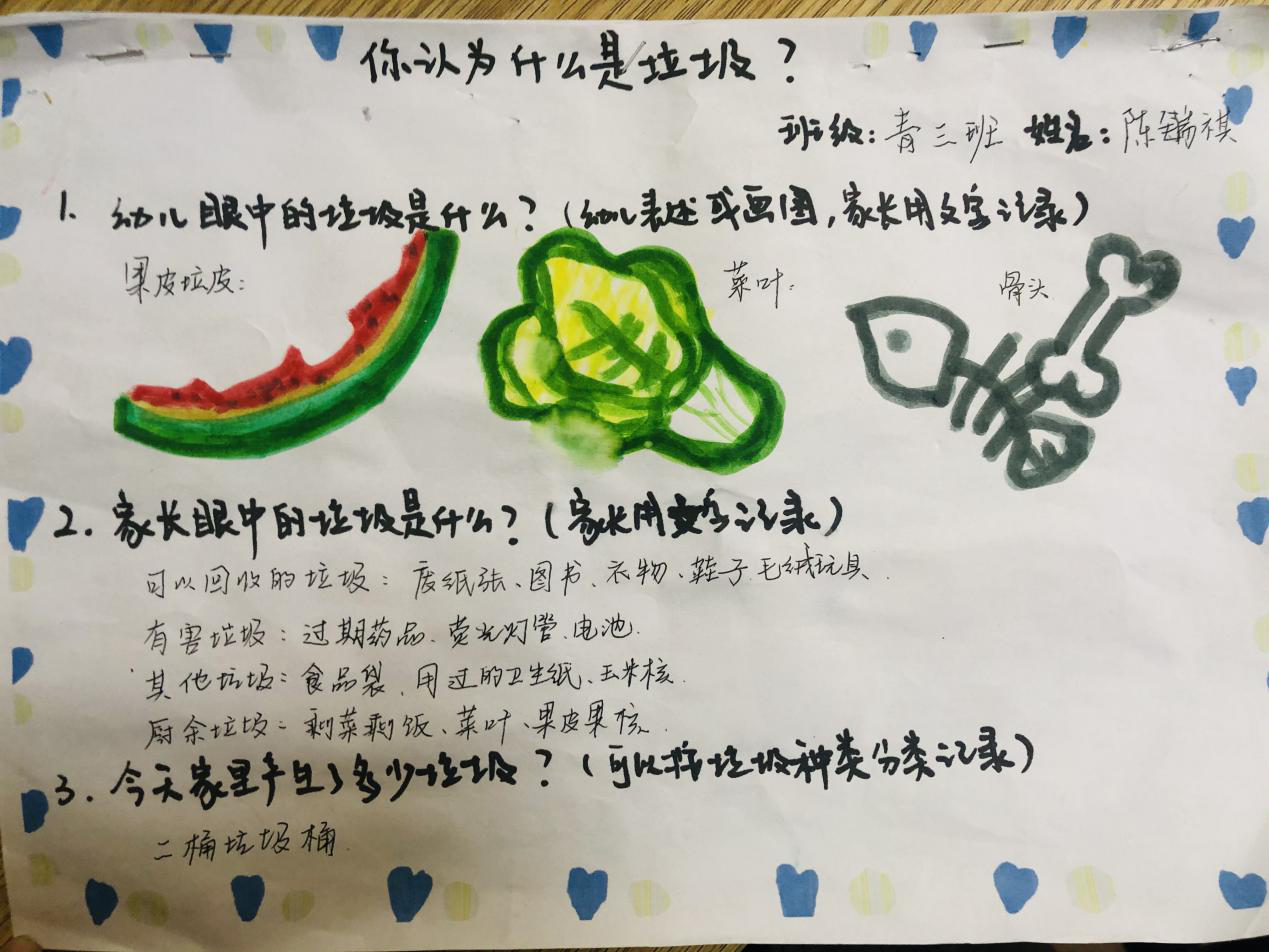 你认为什么是垃圾？
班级：青三班 姓名：陈瑞祺
1. 幼儿眼中的垃圾是什么？（幼儿表述或画图，家长用文字记录）
果皮垃皮： 菜叶： 骨头
2. 家长眼中的垃圾是什么？（家长用文字记录）
可以回收的垃圾：废纸张、图书、衣物、鞋子、毛绒玩具.
有害垃圾：过期药品、荧光灯管、电池.
其他垃圾：食品袋、用过的卫生纸、玉米核.
厨余垃圾：剩菜剩饭、菜叶、果皮果核.
3. 今天家里产生了多少垃圾？（可以按垃圾种类分类记录）
二桶垃圾桶.